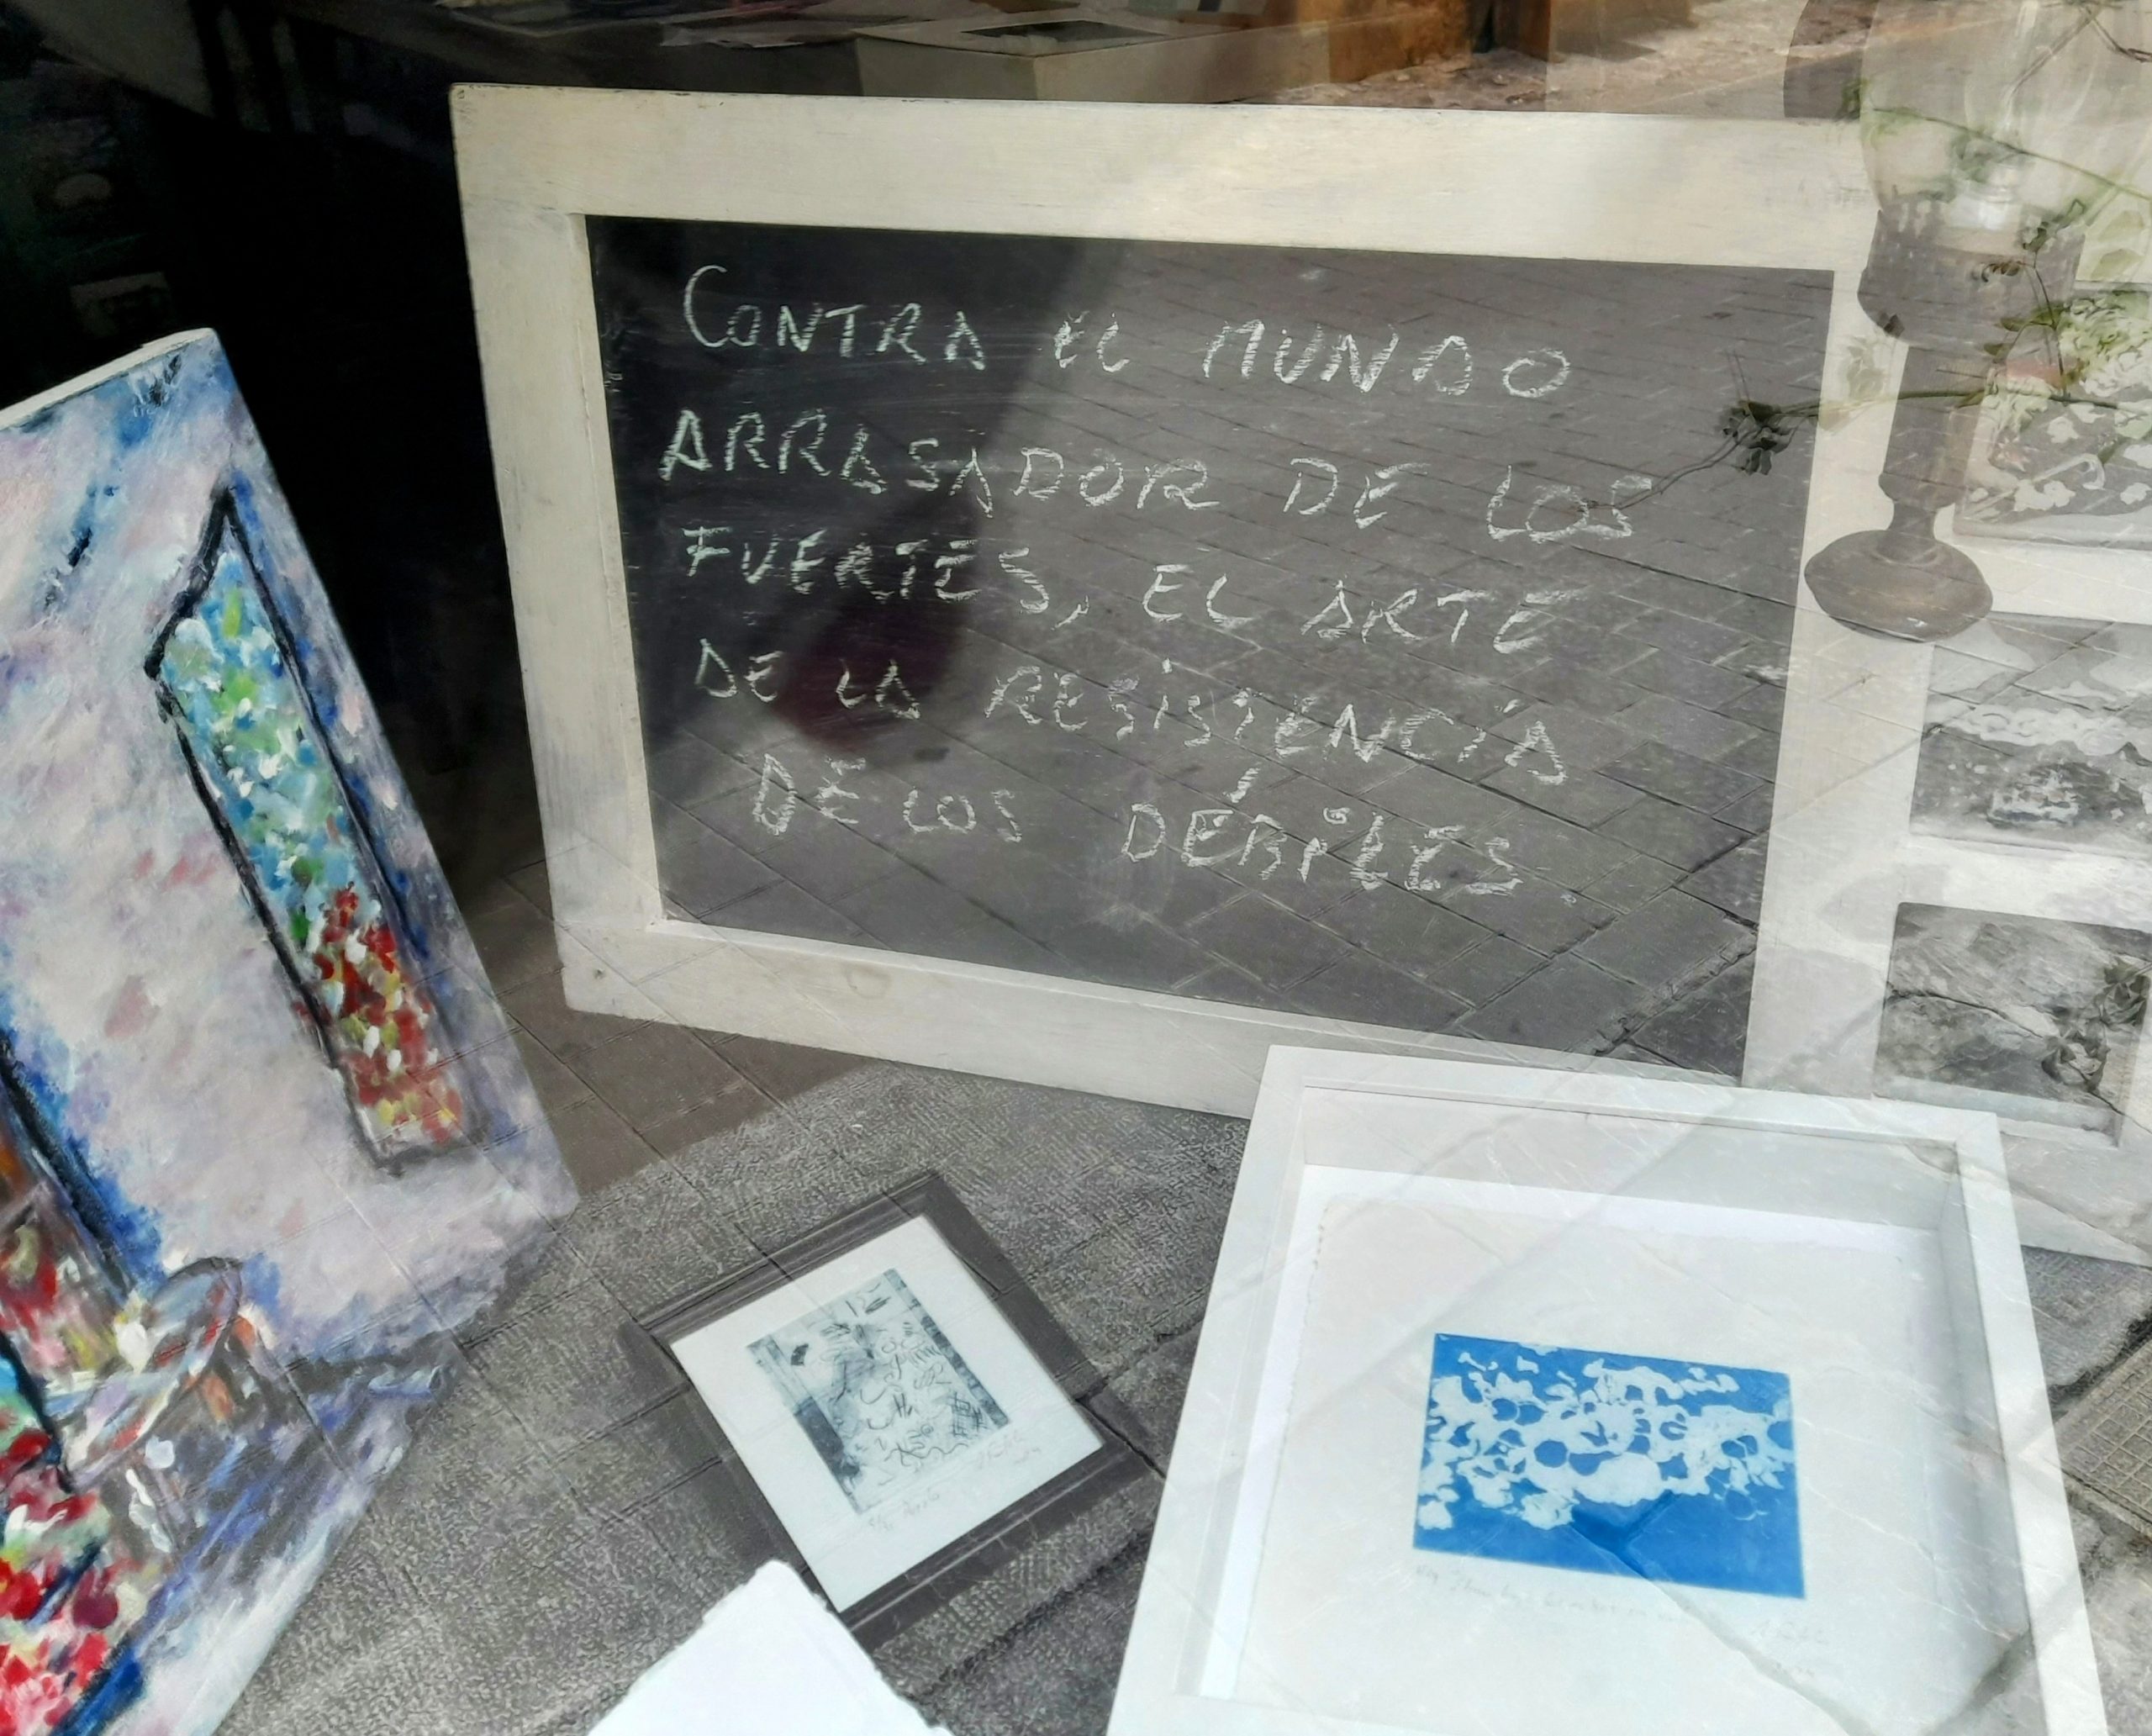 CONTRA El MUNDO
ARRASADOR DE LOS
FUERTES, EL ARTE
DE LA RESISTENCIA
DE LOS DÉBILES